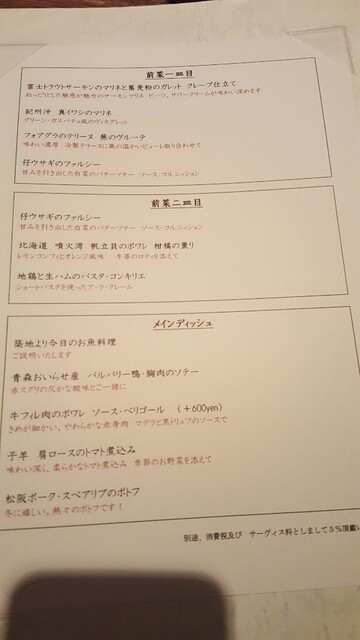 前菜一皿目
富士トラウトサーモンのマリネと蕎麦粉のガレット クレープ仕立て
ねっとりとした触感が魅力のサーモンマリネ ビーツ、サワークリームが味わい深めます
紀州沖 真イワシのマリネ
グリーン・ガスパチョ風のヴィネグレット
フォアグラのテリーヌ 蕪のヴルーテ
味わい濃厚 冷製テリーヌに蕪の温かいピューレ取り合わせて
仔ウサギのファルシー
甘みを引き出した白菜のバターソテー ソース・コルニッション
前菜二皿目
仔ウサギのファルシー
甘みを引き出した白菜のバターソテー ソース・コルニッション
北海道 噴火湾 帆立貝のポワレ 柑橘の薫り
レモンコンフィとオレンジ風味 牛蒡のロティを添えて
地鶏と生ハムのパスタ・コンキリエ
ショートパスタを使ったア・ラ・クレーム
メインディッシュ
築地より今日のお魚料理
ご説明いたします
青森おいらせ産 バルバリー鴨・胸肉のソテー
赤スグリの仄かな酸味とご一緒に
牛フィレ肉のポワレ ソース・ペリゴール (+600yen)
きめが細かい、やわらかな赤身肉 マデラと黒トリュフのソースで
子羊 肩ロースのトマト煮込み
味わい深く、柔らかなトマト煮込み 季節のお野菜を添えて
松阪ポーク・スペアリブのポトフ
冬に嬉しい。熱々のポトフです!
別途、消費税及び サーヴィス料としまして5%頂戴い